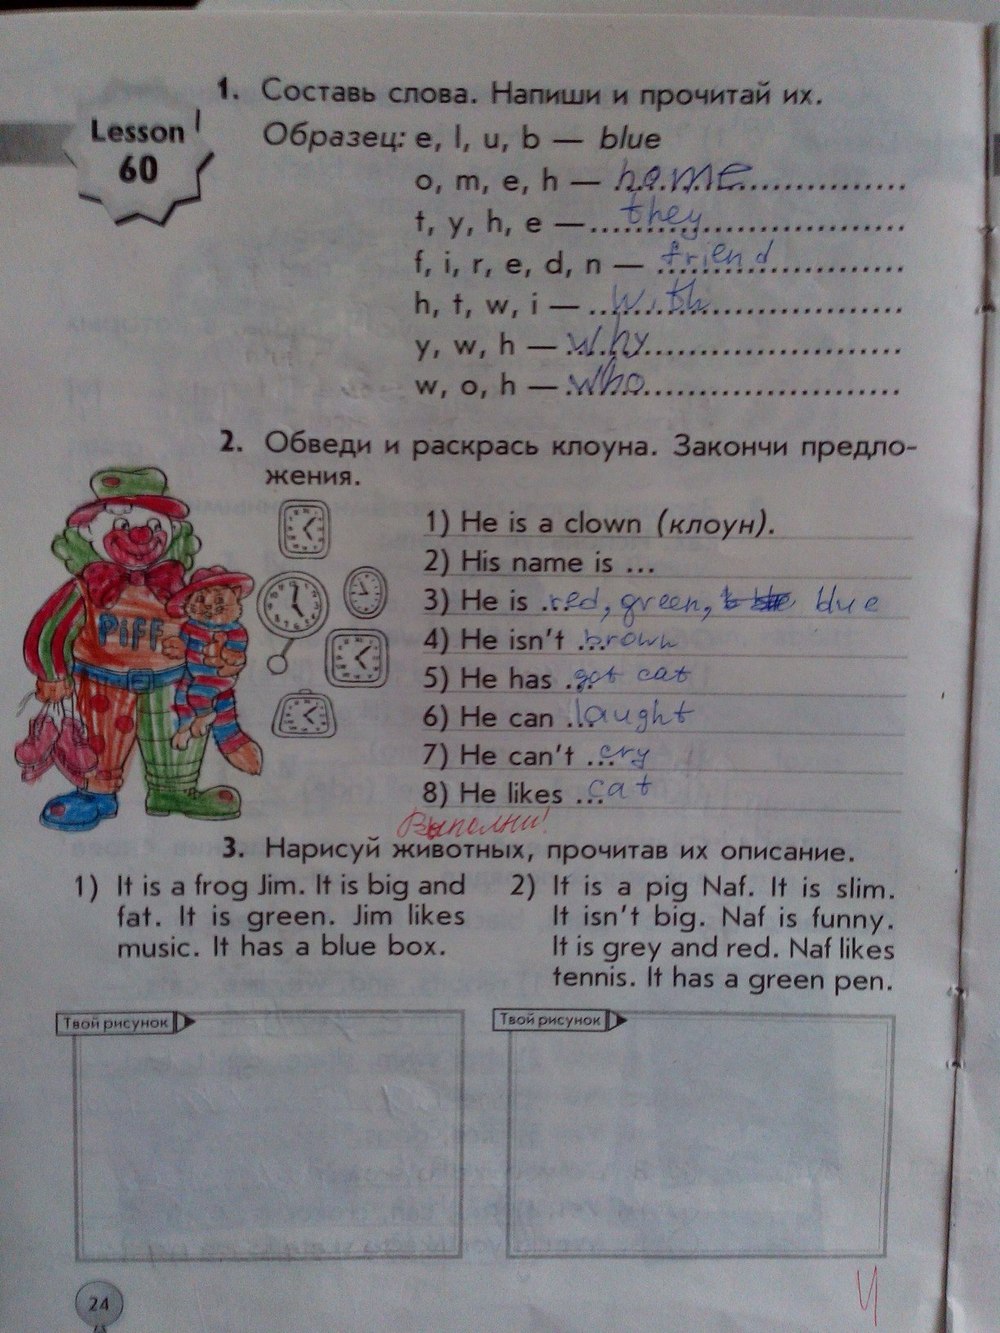 Lesson
60
1. Составь слова. Напиши и прочитай их.
Образец: e, l, u, b — blue
o, m, e, h — home
t, y, h, e — they
f, i, r, e, d, n — friend
h, t, w, i — with
y, w, h — why
w, o, h — who
2. Обведи и раскрась клоуна. Закончи предло-
жения.
PIFF
1) He is a clown (клоун).
2) His name is ...
3) He is ...red, green, blue
4) He isn't ...brown
5) He has ...got cat
6) He can ...laught
7) He can't ...cry
8) He likes ...cat
Выполни!
3. Нарисуй животных, прочитав их описание.
1) It is a frog Jim. It is big and
fat. It is green. Jim likes
music. It has a blue box.
2) It is a pig Naf. It is slim.
It isn't big. Naf is funny.
It is grey and red. Naf likes
tennis. It has a green pen.
Твой рисунок
Твой рисунок
24
4